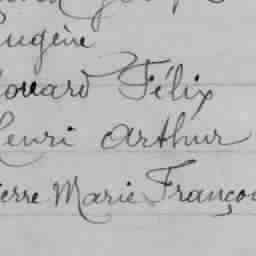 Eugène
Edouard Félix
Henri Arthur
Pierre Marie François